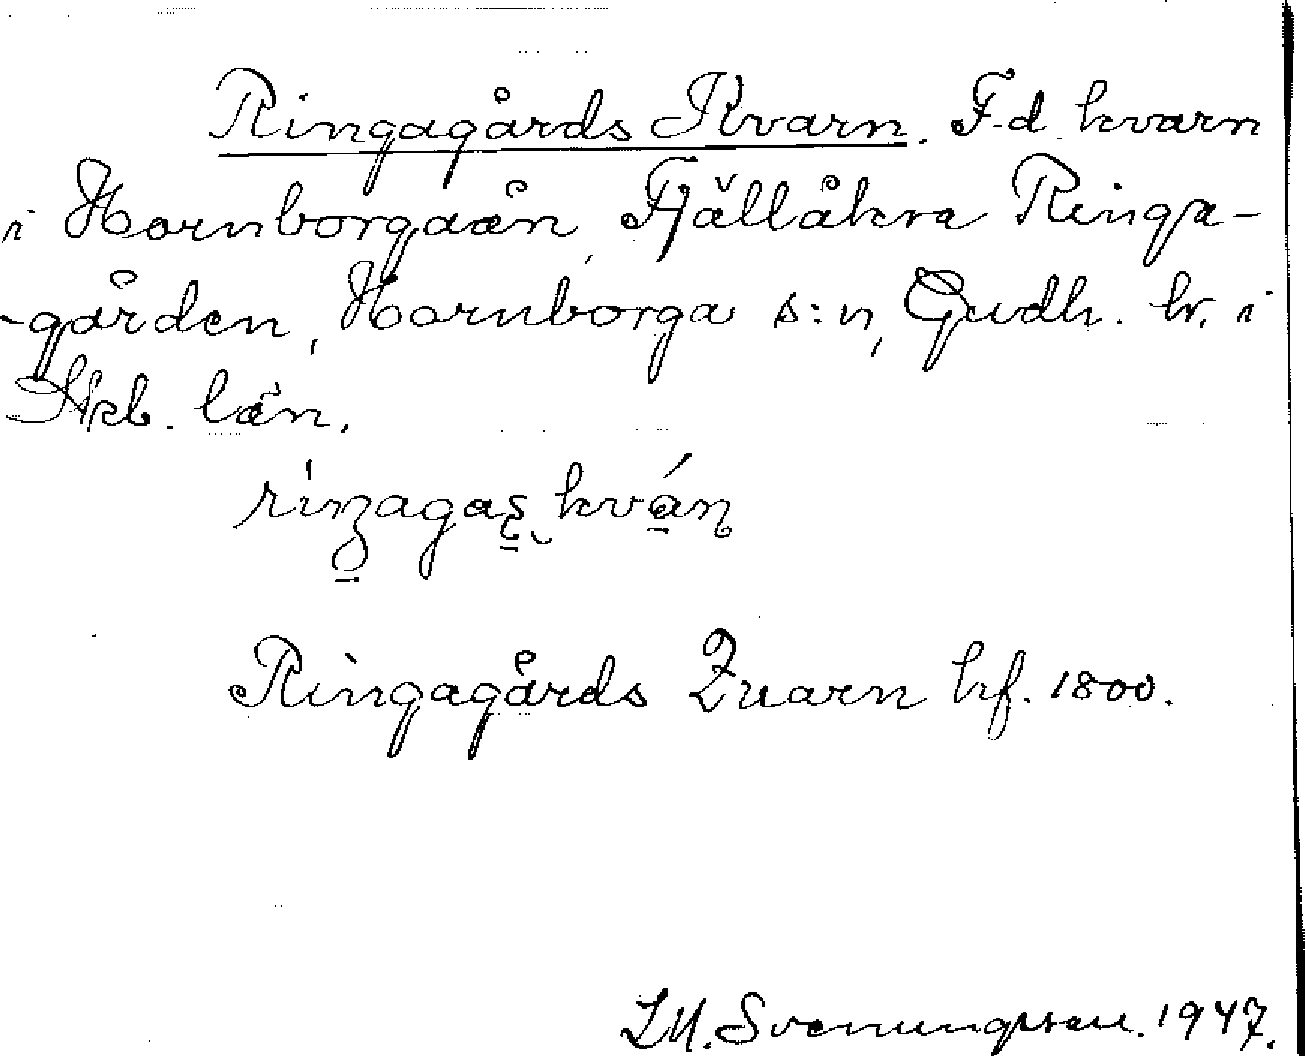 Ringagårds Kvarn. F.d. kvarn
i Hornborgaån, Fjällåkra Ringa-
-gården, Hornborga s:n, Gudh. hr. i
Skb. län.
Ringagårds Quarn hf. 1800.
L.M. Svenungsson. 1947.